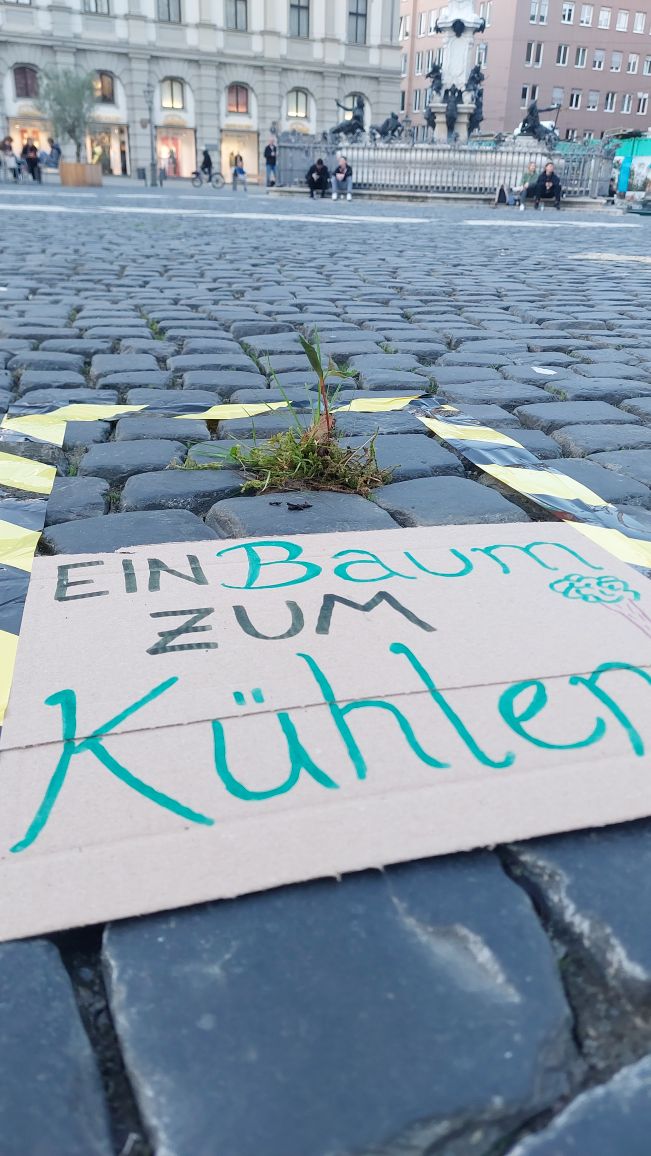 EIN Baum
ZUM
Kühlen